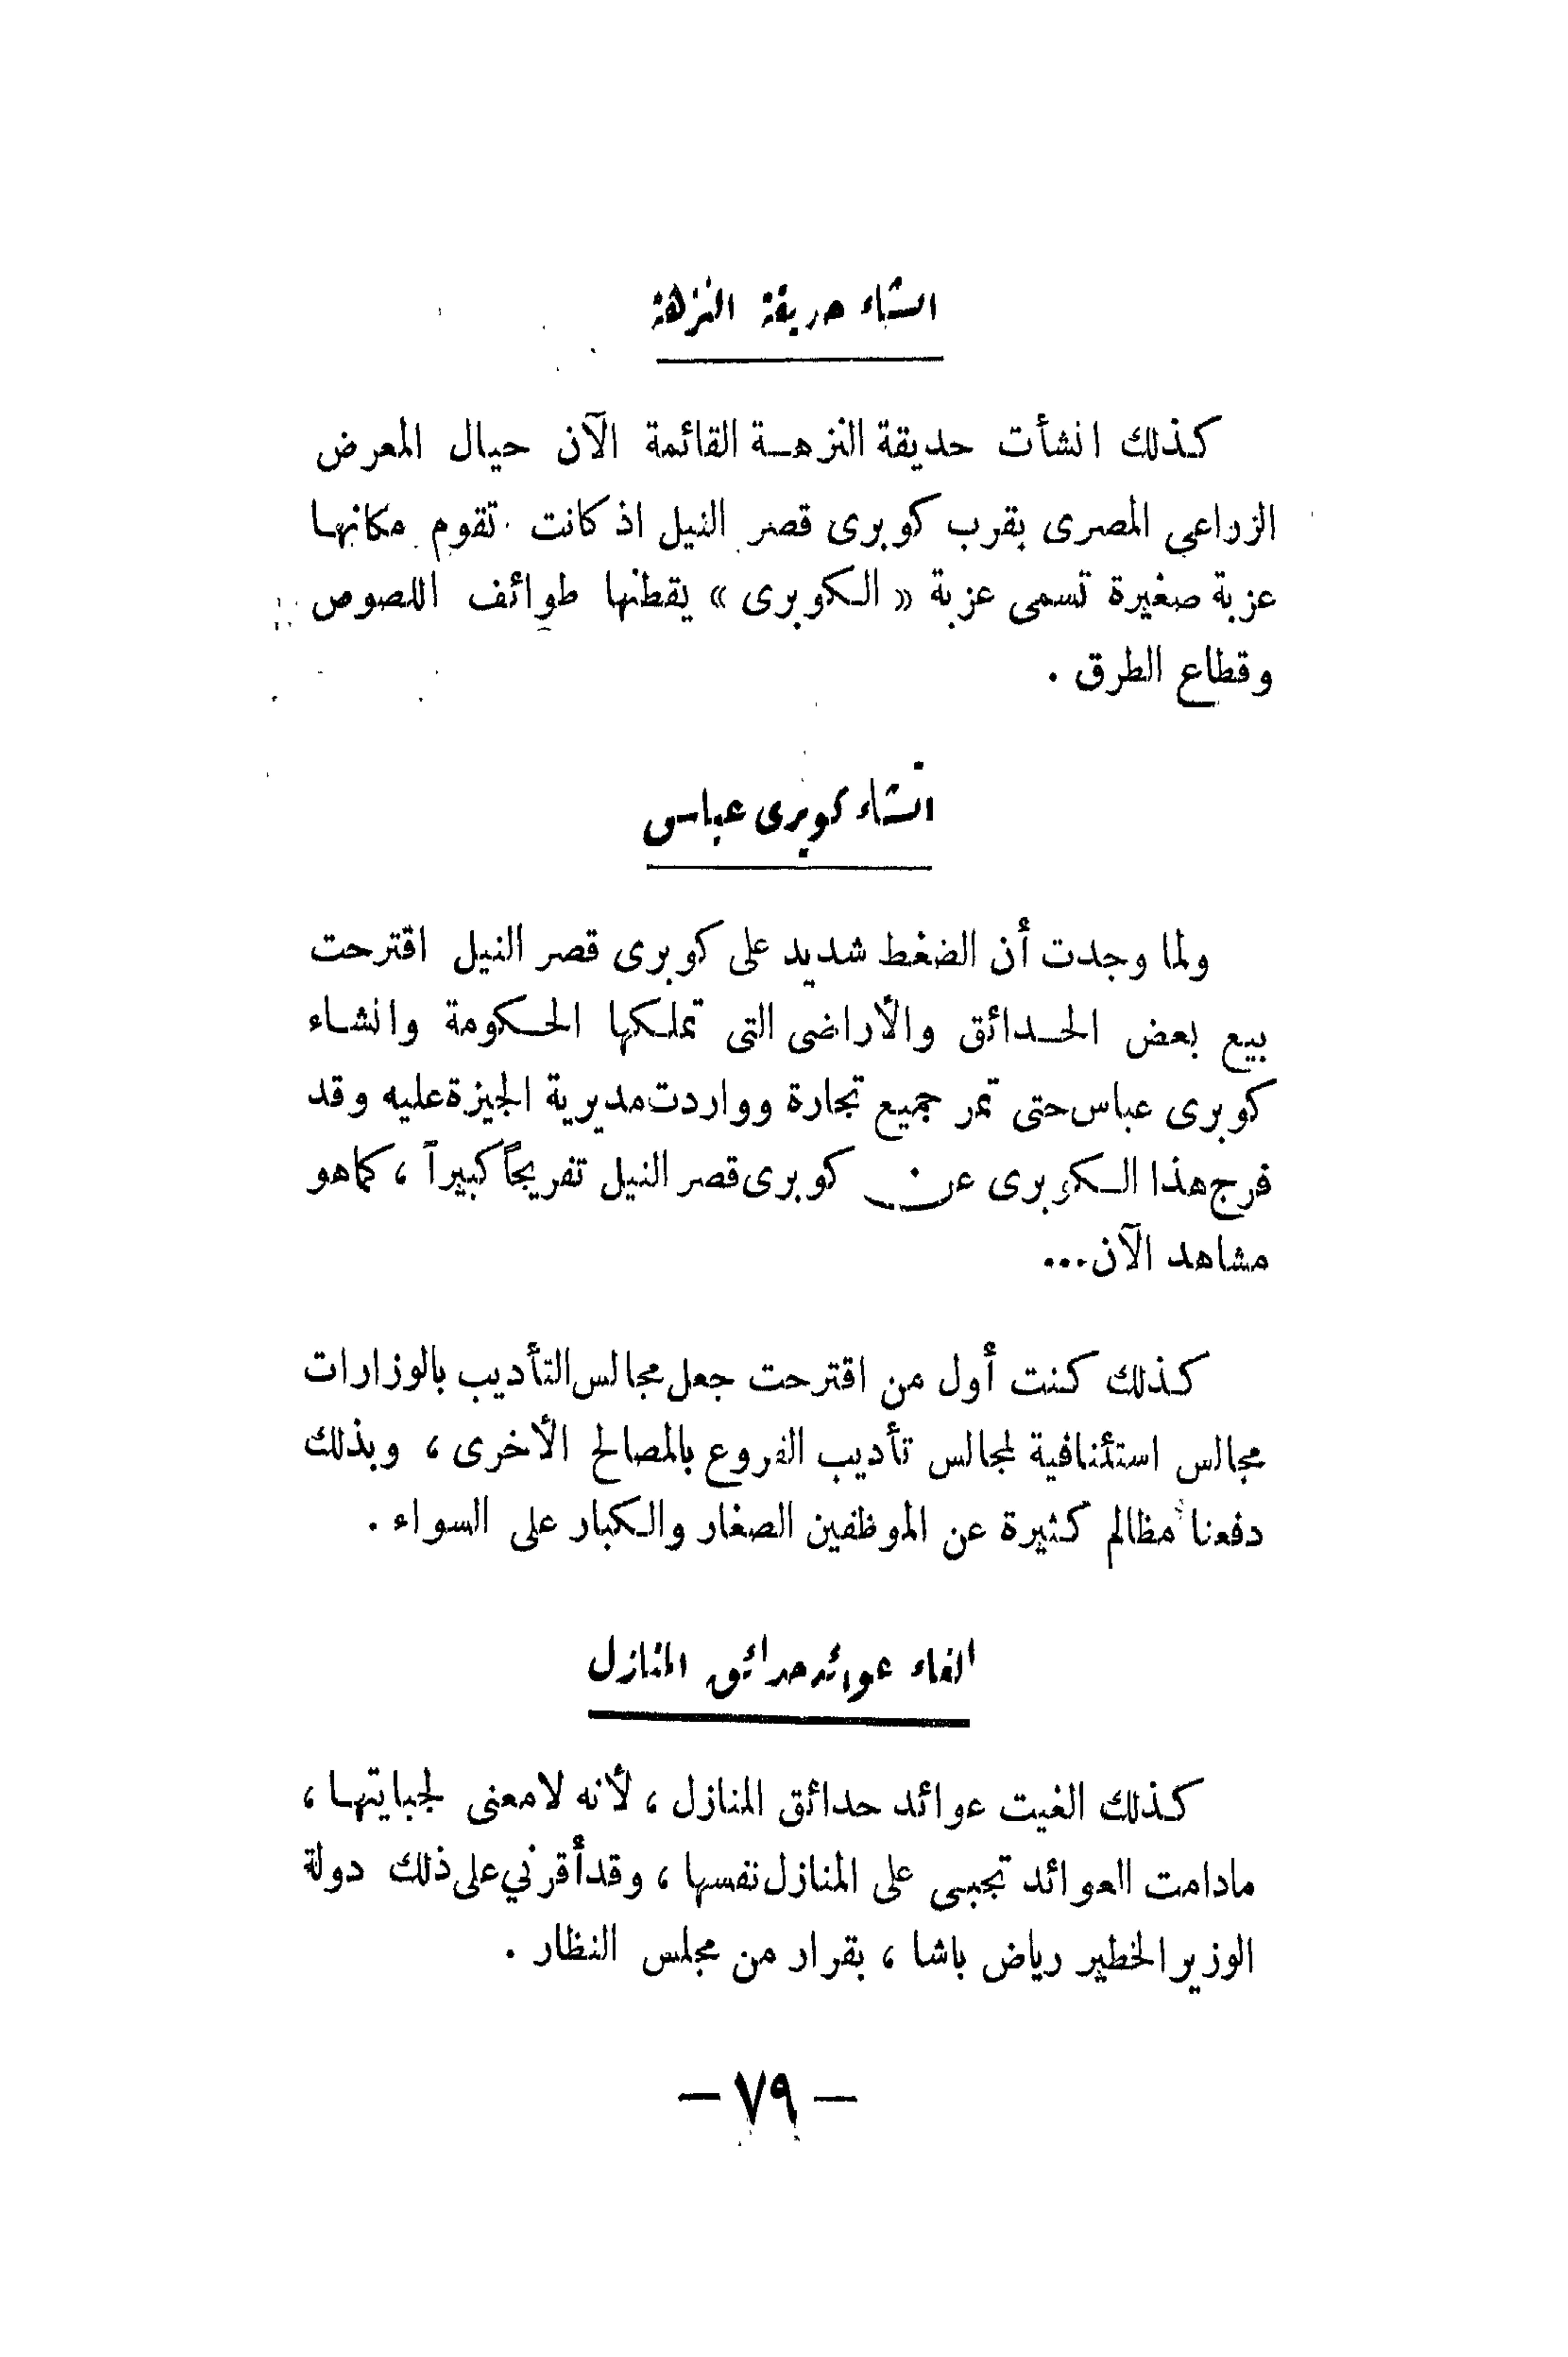 انشاء حديقة النزهة
كذلك انشأت حديقة النزهة القائمة الآن حيال المعرض
الزراعي المصرى بقرب كوبرى قصر النيل اذ كانت تقوم مكانها
عزبة صغيرة تسمى عزبة « الكوبرى » يقطنها طوائف اللصوص
وقطاع الطرق .
انشاء كوبرى عباس
ولما وجدت أن الضغط شديد على كوبرى قصر النيل اقترحت
بيع بعض الحدائق والأراضى التى تملكها الحكومة وانشاء
كوبرى عباس حتى تمر جميع تجارة وواردت مديرية الجيزة عليه وقد
فرج هذا الكوبرى عن كوبرى قصر النيل تفريجاً كبيراً ، كما هو
مشاهد الآن...
كذلك كنت أول من اقترحت جعل مجالس التأديب بالوزارات
مجالس استئنافية لمجالس تأديب الفروع بالمصالح الأخرى ، وبذلك
دفعنا مظالم كثيرة عن الموظفين الصغار والكبار على السواء .
الغاء عوائد حدائق المنازل
كذلك الغيت عوائد حدائق المنازل ، لأنه لامعنى لجبايتها ،
مادامت العوائد تجبى على المنازل نفسها ، وقد أقرني على ذلك دولة
الوزير الخطير رياض باشا ، بقرار من مجلس النظار .
— ٧٩ —